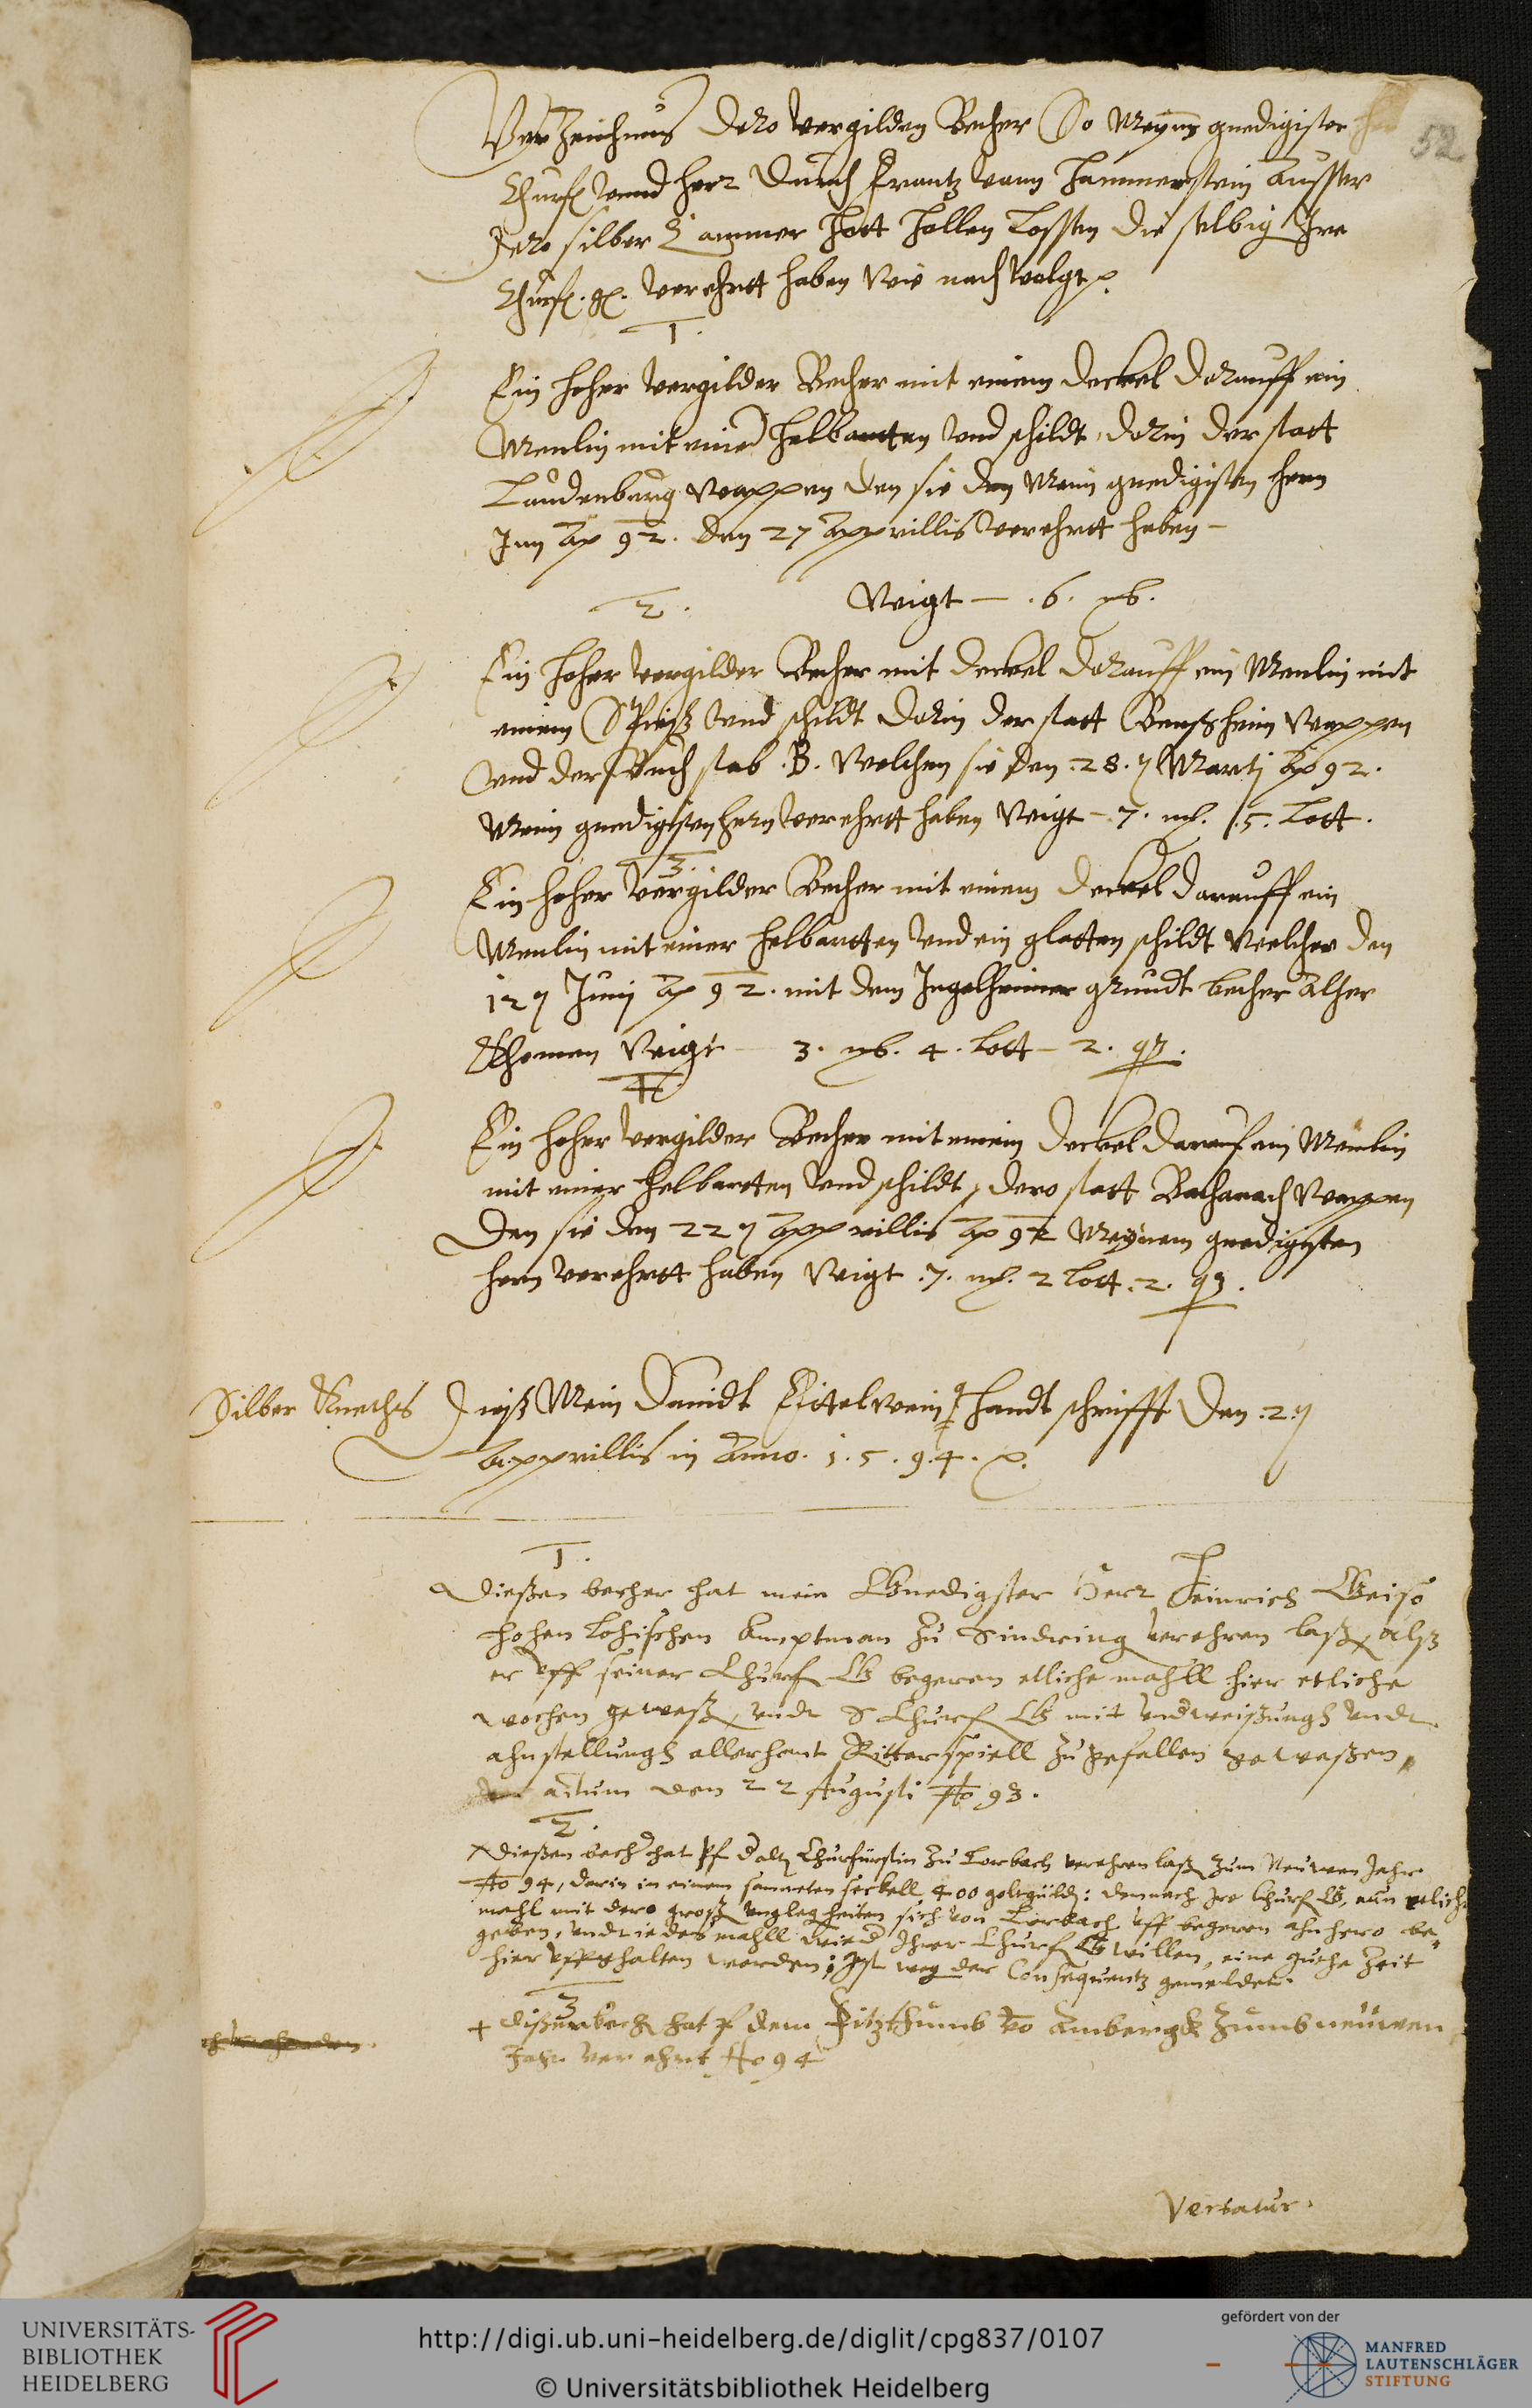 52
Verzeichnus dero vergilden Becher So Meyns gnedigister her
Churf vnnd herr durch Frantz vonn Hammerstein ausser
Jero silber Cammer hott hollen lossen die selbig Jre
Churf. g. verehrtt haben wie nach volgt
1.
Ein hoher vergilder Becher mit einem deckel dorauff ein
Menlin mit einer helbartten vnd schildt dorin der statt
Laudenburg Wappen den sie den Mein gnedigisten hern
Jnn Ao 92. den 27 Apprillis verehrtt haben
2. Wigt — .6. m.
Ein hoher vergilder Becher mit deckel dorauff ein Menlin mit
einem Spiesz vnd schildt dorin der statt Benszheim Wappen
vnd der Buch stab .B. Welchen sie den .28. Martj Ao 92.
Mein gnedigisten hern verehrtt haben Wigt - 7. m. 15. Lott.
3.
Ein hoher vergilder Becher mit einem deckel darauff ein
Menlin mit einer helbartten vnd ein glatten schildt Welcher den
12 Junij Ao 92. mit dem Jngelheimer grundt becher alher
Khomen Wigt — 3. m. 4. Lott - 2. q.
4
Ein hoher vergilder Becher mit einem deckel darauf ein Menlin
mit einer helbartten vnd schildt, dero statt Bacharach Wappen
Den sie den 22 Apprillis Ao 92 Meynem gnedigsten
hern verehrtt haben Wigt .7. m. 2 Lott. 2. q.
Silber Knechts Disz Mein Dauidt Eittelwein handt schrifft den .2.
Apprillis in Anno. 1.5.9.4.
1.
Dießen becher hat mein Gnedigster Herr Heinrich Geiso
hohen lohischen Amptman zu Sindring verehren laß, alß
er vff seiner Churf G begeren etliche mahll hier etliche
wochen geweß, vndt S Churf G mit vndweißungh vndt
ahnstellungh allerhant Ritterspiell zu gefallen geweßen,
actum den 22 Augusti Ao 93.
2.
Dießen bech hat Pf d alt Churfürstin zu Lorbach verehren laß zum Neuwen Jahr
Ao 94, darin in einem sammeten seckell 400 goltgüld: demnach Jre Churf G, nun etlich
mahl mit dero groß vnglegheiten sich von Lorbach vff begeren ahnhero be-
geben, vndt iedes mahll wied Jhrer Churf G willen, eine guthe Zeit
hier vffghalten worden; Jst weg der Consequentz gemeldet.
3
+ Dißen bech hat dem Fitzthumb vo Ambergk zumb neüwen
Jahr ver ehrt Ao 94
Vertatur.
UNIVERSITÄTS-
BIBLIOTHEK
HEIDELBERG
http://digi.ub.uni-heidelberg.de/diglit/cpg837/0107
© Universitätsbibliothek Heidelberg
gefördert von der
MANFRED
LAUTENSCHLÄGER
STIFTUNG